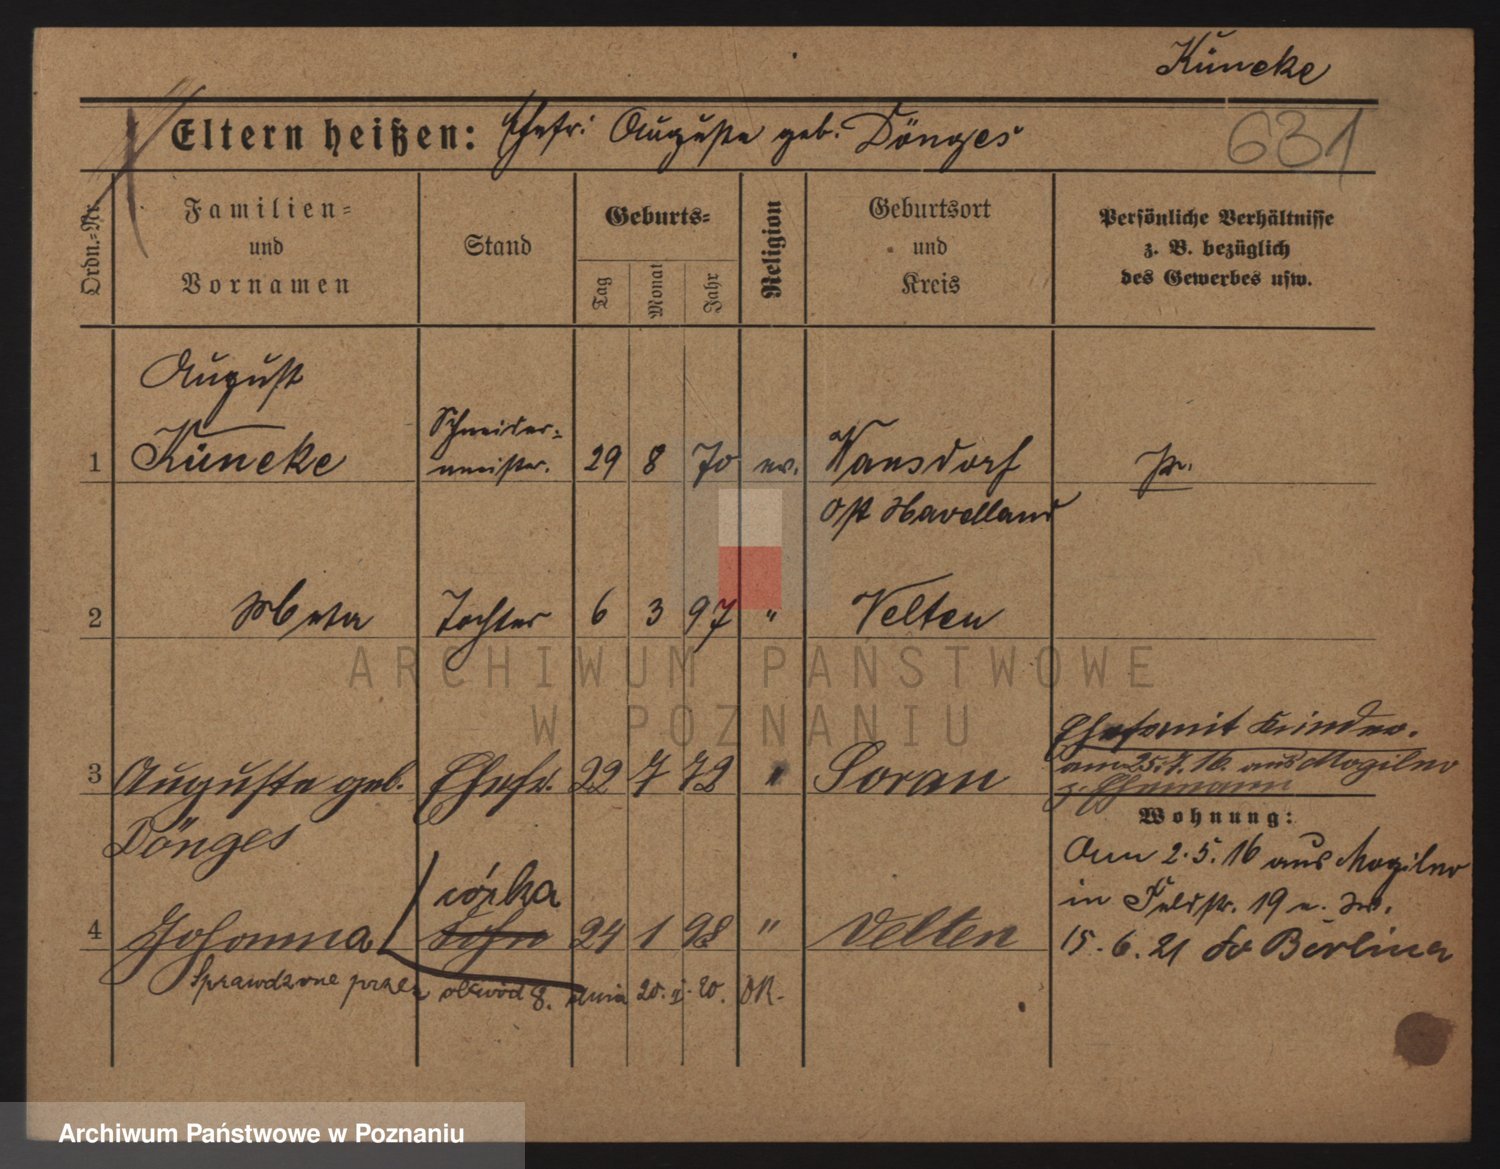 Küncke
Eltern heißen: Ehefr: Auguste geb. Dönges
631
Ordn.=Nr.
Familien=
und
Vornamen
Stand
Geburts=
Tag
Monat
Jahr
Religion
Geburtsort
und
Kreis
Persönliche Verhältnisse
z. B. bezüglich
des Gewerbes usw.
August
1 Küncke Schneider=
meister. 29 8 70 ev. Wansdorf Pr.
Ost Havelland
2 Meta Tochter 6 3 97 " Velten
ARCHIWUM PAŃSTWOWE
W POZNANIU
3 Auguste geb. Ehefr. 22 7 72 " Soran
Dönges
Ehefr mit Kinder.
am 25.7.16 aus Mogilno
z. Ehemann
Wohnung:
Am 2.5.16 aus Mogilno
in Feldstr. 19
15.6.21 do Berlina
córka
4 Johanna Sohn 24 1 98 " Velten
Sprawdzone przez obwód 8. dnia 20. I. 20. DR.
Archiwum Państwowe w Poznaniu